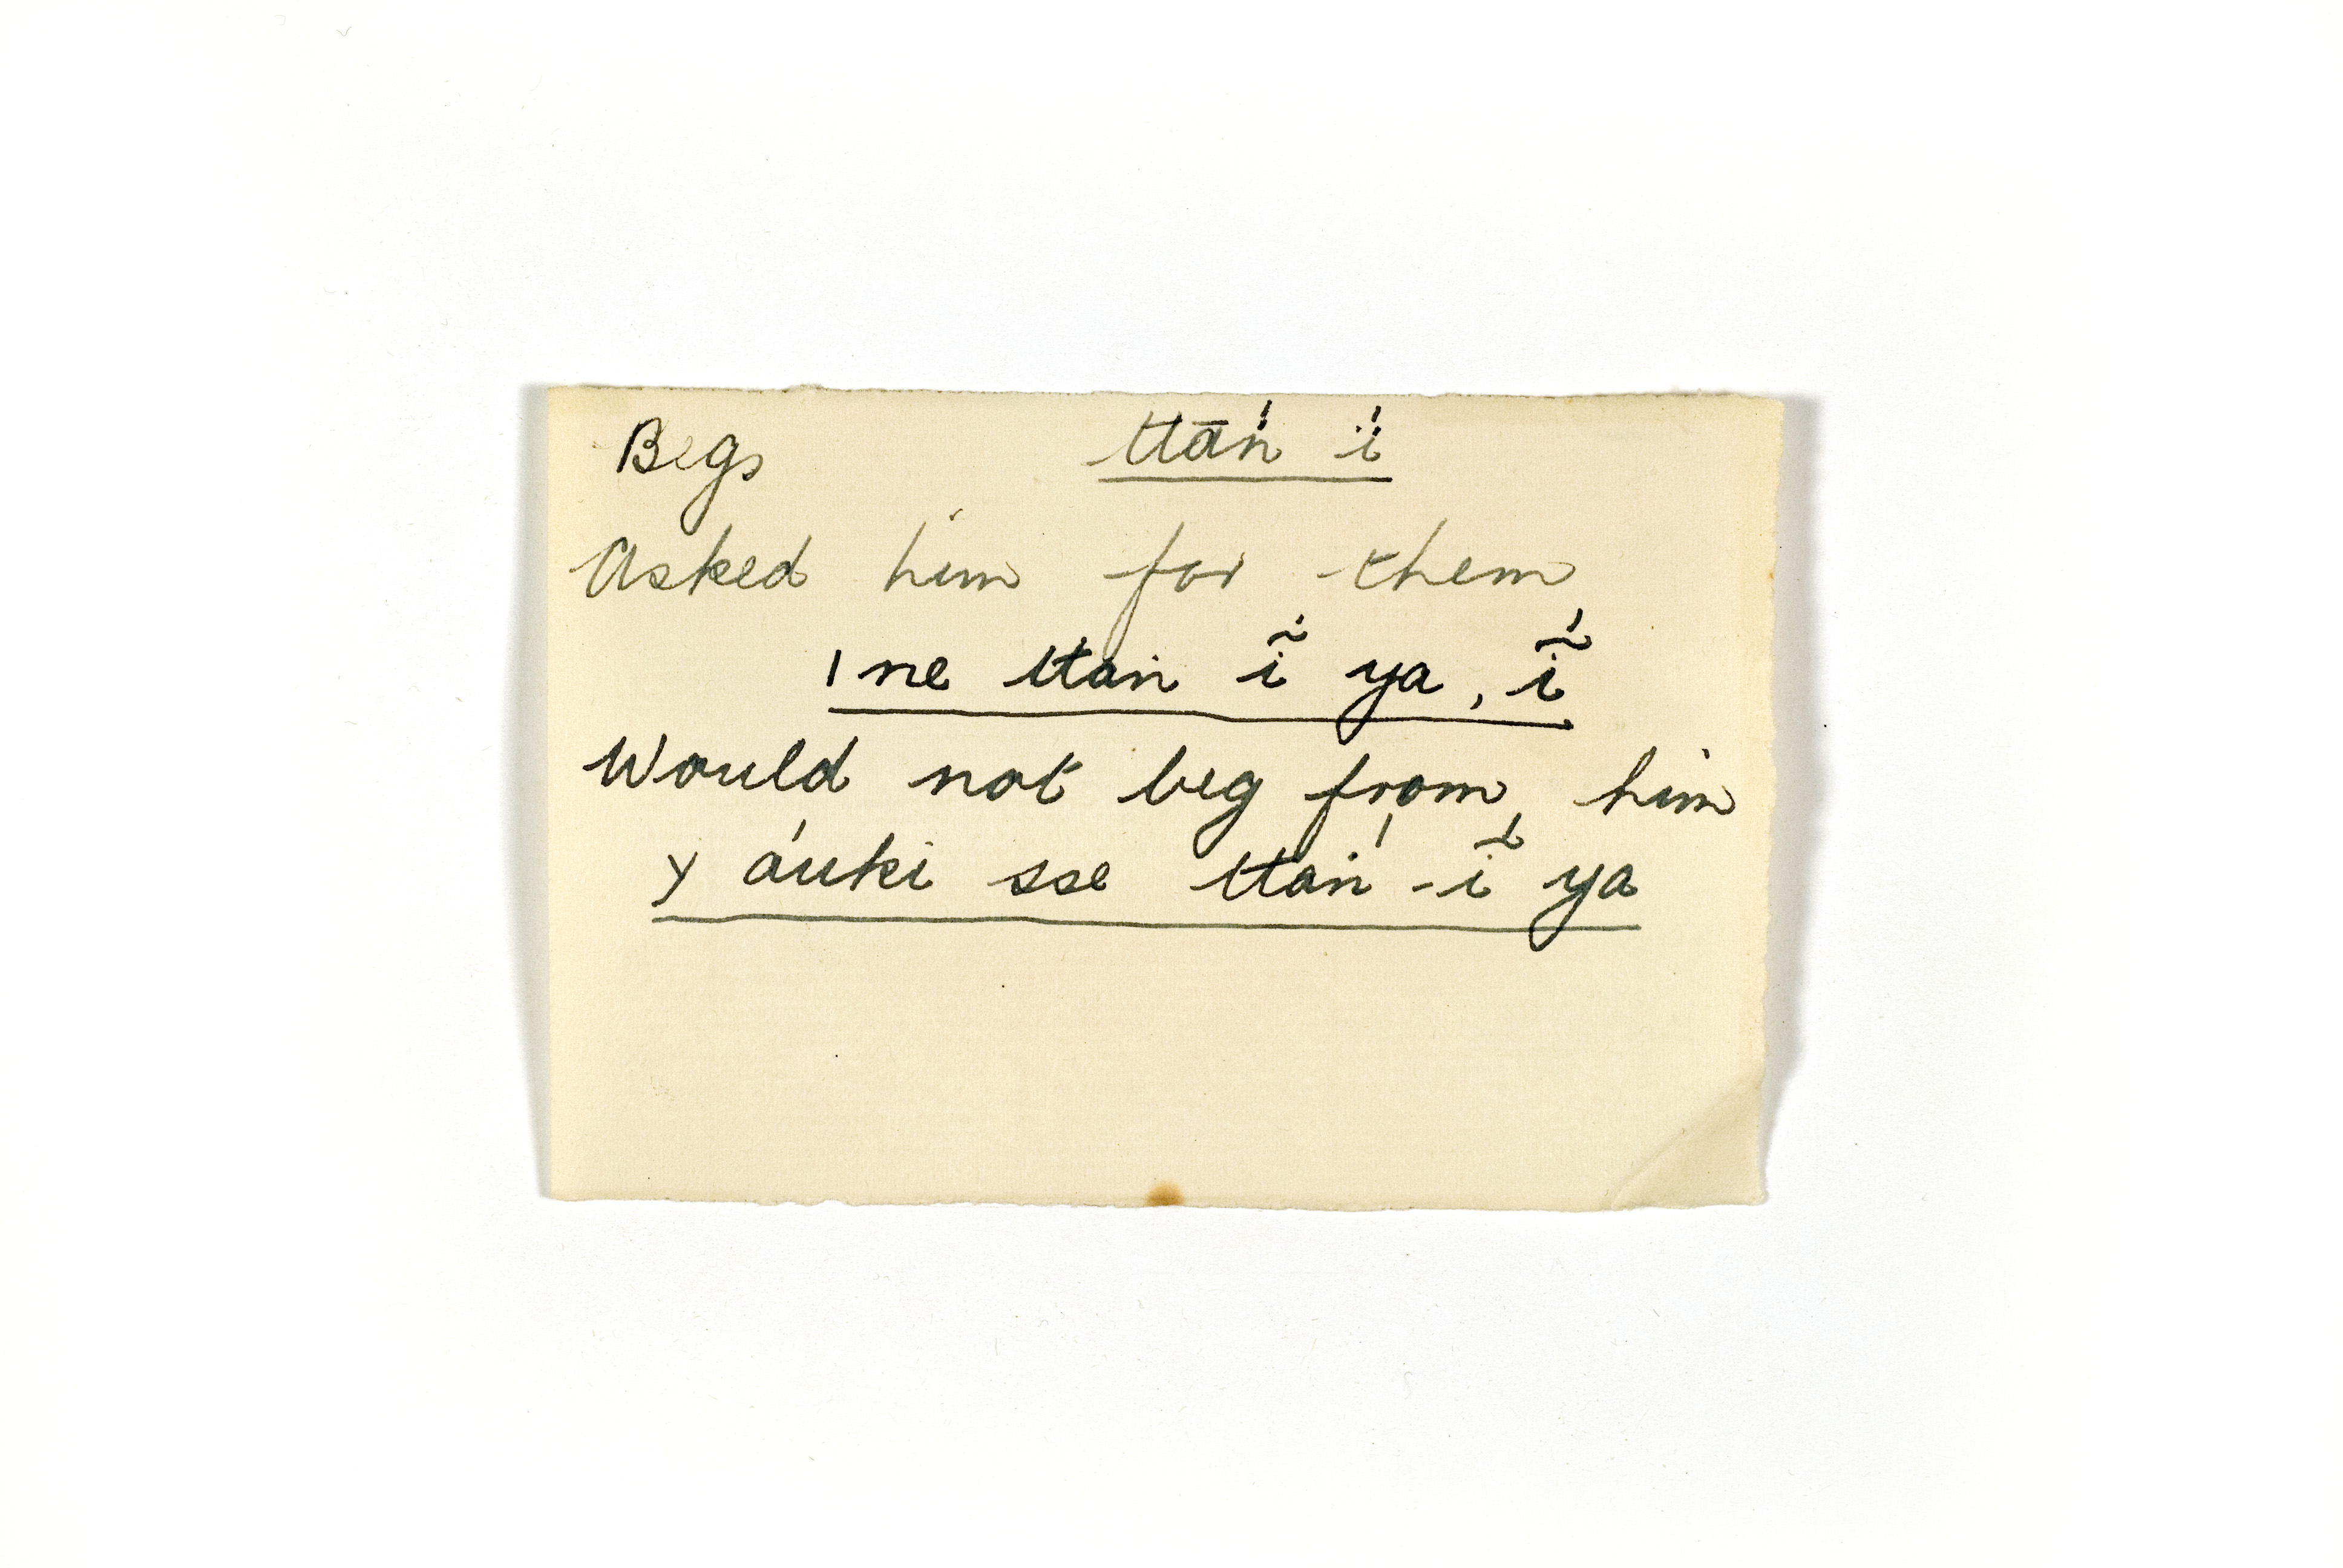 Begs ttān̈́ ḯ
Asked him for them
ı ne ttaṅ ĩ ya , ĩ́
Would not beg from him
y áuki sse ttaṅ́ - ĩ́ ya